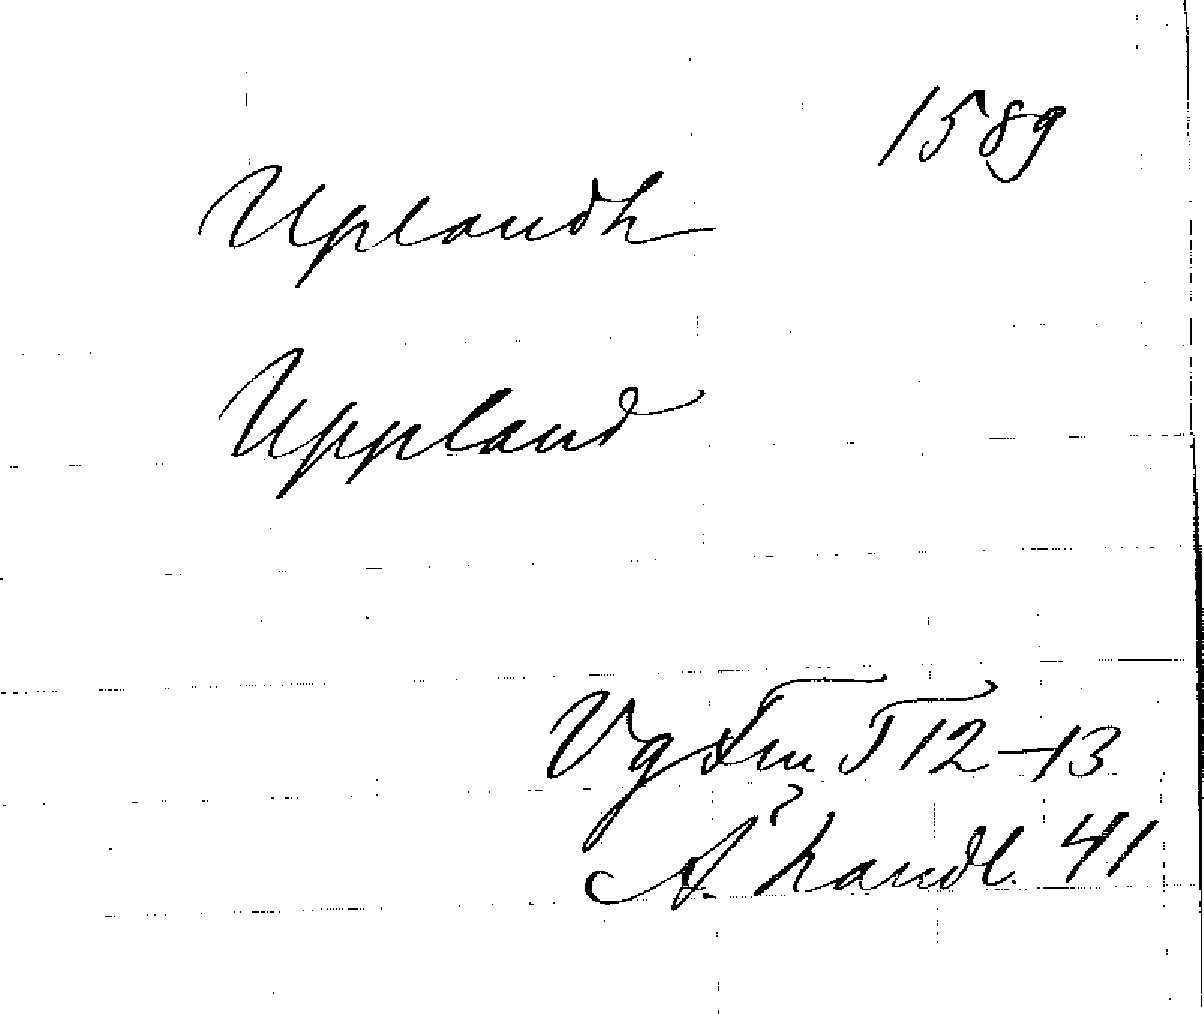 1589
Uplandh
Uppland
Vg Fm T 12-13
A. handl. 41